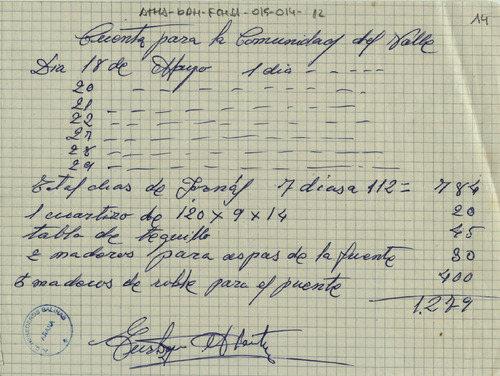 015-014-12
14
Cuenta para la Comunidad del Valle
Dia 18 de Mayo 1 dia - - - - -
20 - - - - - - - - - -
21 - - - - - - - - - -
22 - - - - - - - - - -
27 - - - - - - - - - -
28 - - - - - - - - - -
29 - - - - - - - - - -
Total dias de Jornál 7 dias a 112 = 784
1 cuartizo de 120 x 9 x 14 20
tabla de 45
2 maderos para aspas de la fuente 30
5 maderos de roble para el puente 400
1.279
SALINAS
AÑANA